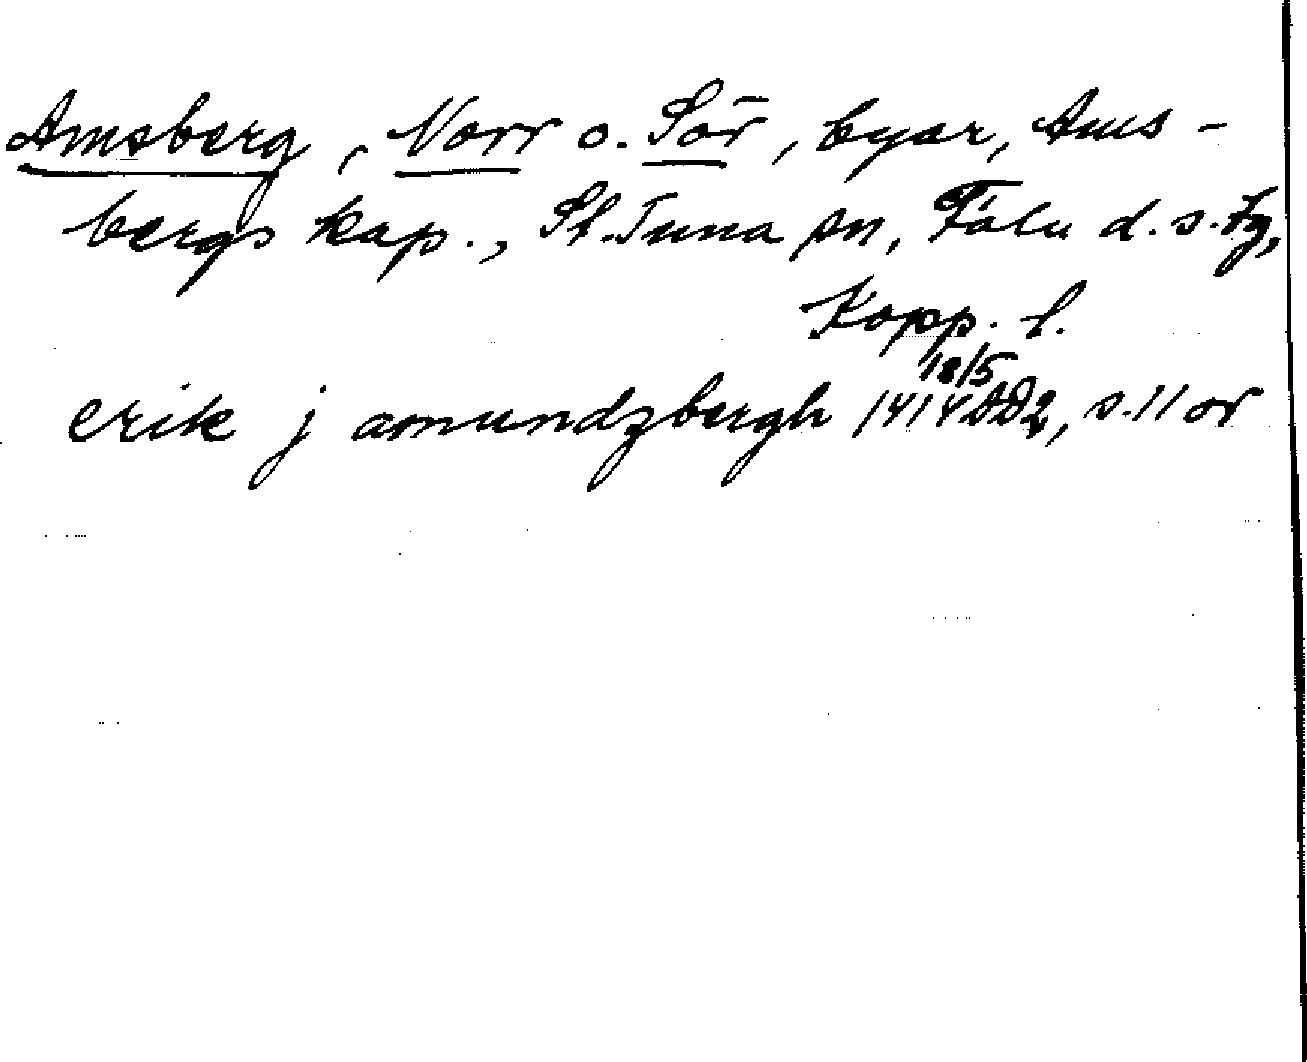 Amsberg, Norr o. Sör, byar, Ams-
bergs kap., St. Tuna sn, Falu d. s. tg,
Kopp. l.
erik j amundzbergh 1414 18/5 DD2, s. 11 or